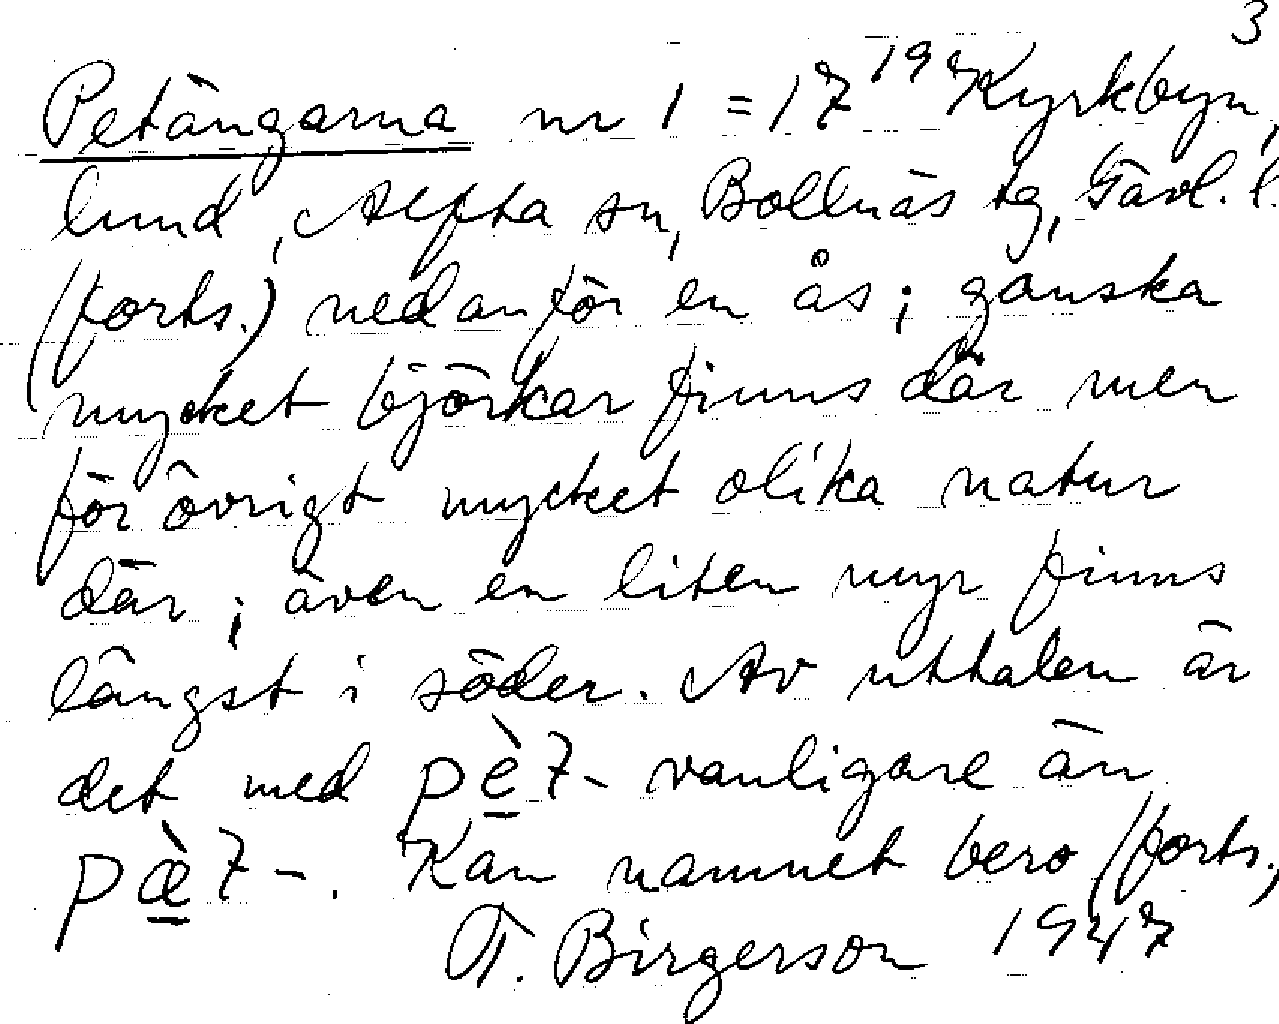 3
Petängarna nr 1 = 17¹⁹ Kyrkbyn,
lund, Alfta sn, Bollnäs tg, Gävl. l.
(forts.) nedanför en ås; ganska
mycket björkar finns där men
för övrigt mycket olika natur
där; även en liten myr finns
längst i söder. Av uttalen är
det med pè̱7- vanligare än
pæ̱̀7-. Kan namnet bero (forts.)
T. Birgerson 1947